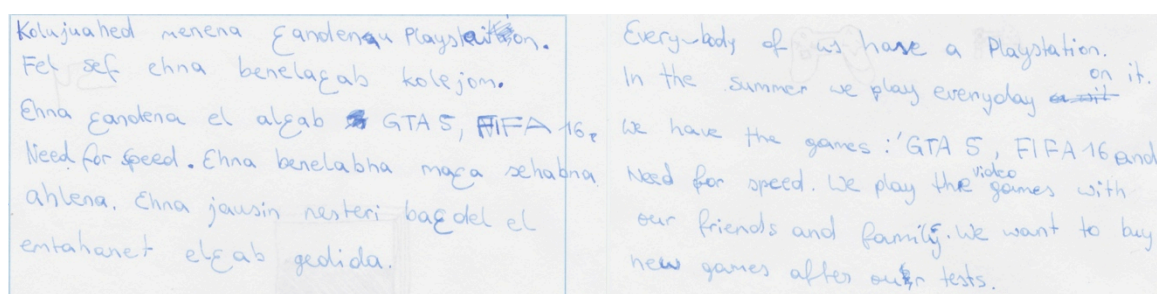 Kolujuahed menena Ɛandenau Playstation.
Fel sef ehna benelaƐab kolejom.
Ehna Ɛandena el alƐab GTA 5, FIFA 16,
Need for speed. Ehna benelabha maƐa sehabna
ahlena. Ehna jausin nesteri baƐdel el
emtahanet elƐab gedida.
Everybody of us have a Playstation.
In the summer we play everyday on it.
We have the games: 'GTA 5, FIFA 16 and
Need for speed. We play the video games with
our friends and family. We want to buy
new games after our tests.